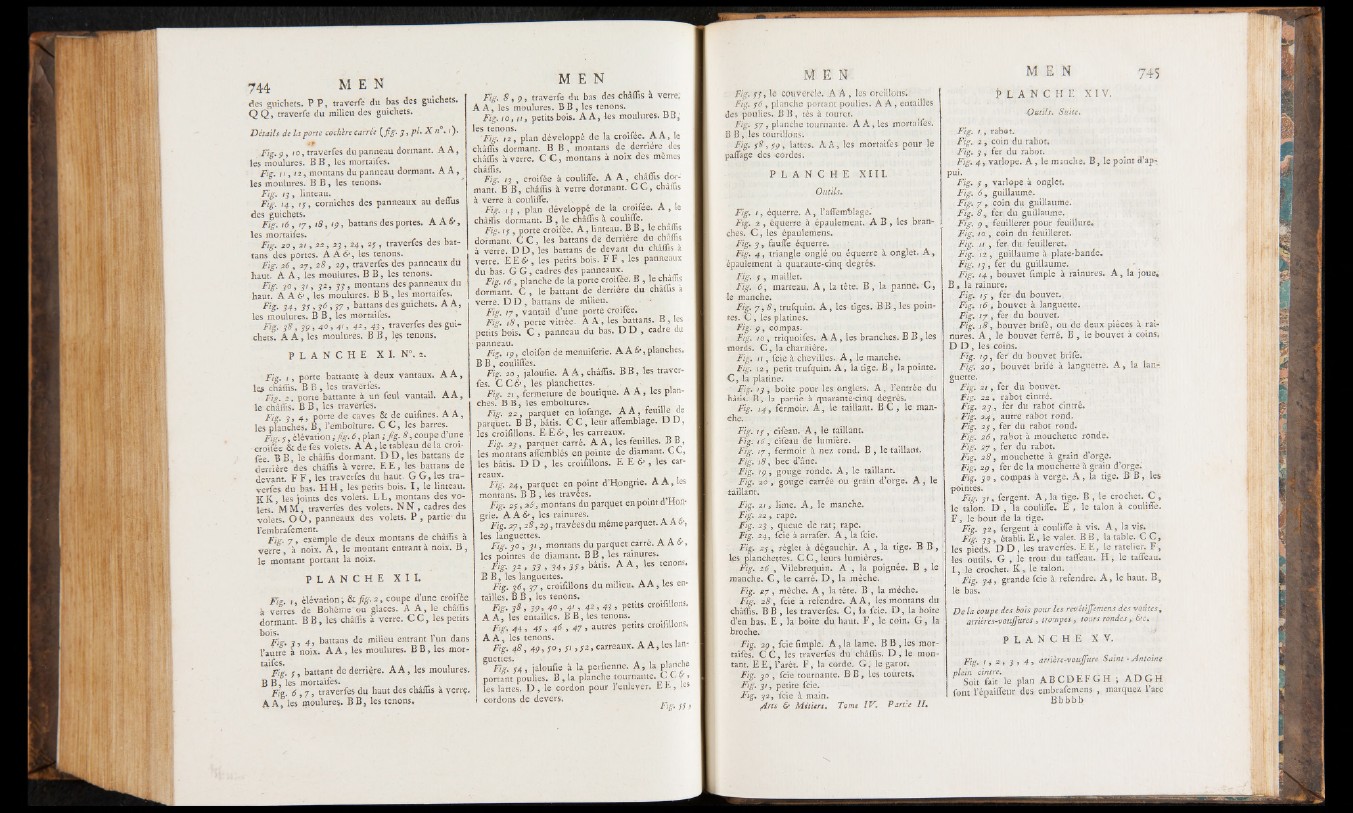 744 MEN
des guichets. P P, traverſe du bas des guichets.
Q Q, traverſe du milieu des guichets.
Détails de la porte cochère carrée (fig. 3, pl. X n°. 1).
Fig. 9, 10, traverſes du panneau dormant. A A,
les moulures. B B, les mortaiſes.
Fig. 11, 12, montans du panneau dormant. A A,
les moulures. B B, les tenons.
Fig. 13, linteau.
Fig. 14, 15, corniches des panneaux au deſſus
des guichets.
Fig. 16, 17, 18, 19, battans des portes. A A &,
les mortaiſes.
Fig. 20, 21, 22, 23, 24, 25, traverſes des bat-
tans des portes. A A &, les tenons.
Fig. 26, 27, 28, 29, traverſes des panneaux du
haut. A A, les moulures. B B, les tenons.
Fig. 30, 31, 32, 33, montans des panneaux du
haut. A A &, les moulures. B B, les mortaiſes.
Fig. 34, 35, 36, 37, battans des guichets. A A,
les moulures. B B, les mortaiſes.
Fig. 38, 39, 40, 41, 42, 43, traverſes des gui-
chets. A A, les moulures. B B, les tenons.
PLANCHE XI. N°. 2.
Fig. 1, porte battante à deux vantaux. A A,
les châſſis. B B, les traverſes.
Fig. 2, porte battante à un ſeul vantail. A A,
le châſſis. B B, les traverſes.
Fig. 3, 4, porte de caves & de cuiſines. A A,
les planches. B, l'emboîture. C C, les barres.
Fig. 5, élévation; fig. 6, plan; fig. 8, coupe d'une
croiſée & de ſes volets. A A, le tableau de la croi-
ſée. B B, le châſſis dormant. D D, les battans de
derrière des châſſis à verre. E E, les battans de
devant. F F, les traverſes du haut. G G, les tra-
verſes du bas. H H, les petits bois. I, le linteau.
K K, les joints des volets. L L, montans des vo-
lets. M M, traverſes des volets. N N, cadres des
volets. O O, panneaux des volets. P, partie du
l'embraſement.
Fig. 7, exemple de deux montans de châſſis à
verre, à noix. A, le montant entrant à noix. B,
le montant portant la noix.
PLANCHE XII.
Fig. 1, élévation; & fig. 2, coupe d'une croiſée
à verres de Bohème ou glaces. A A, le châſſis
dormant. B B, les châſſis à verre. C C, les petits
bois.
Fig. 3, 4, battans de milieu entrant l'un dans
l'autre à noix. A A, les moulures. B B, les mor-
taiſes.
Fig. 5, battant de derrière. A A, les moulures.
B B, les mortaiſes.
Fig. 6, 7, traverſes du haut des châſſis à verre.
A A, les moulures. B B, les tenons.
MEN
Fig. 8, 9, traverſe du bas des châſſis à verre;
A A, les moulures. B B, les tenons.
Fig. 10, 11, petits bois. A A, les moulures. B B,
les tenons.
Fig. 12, plan développé de la croiſée. A A, le
châſſis dormant. B B, montans de derrière des
châſſis à verre. C C, montans à noix des mêmes
châſſis.
Fig. 13, croiſée à couliſſe. A A, châſſis dor-
mant. B B, châſſis à verre dormant. C C, châſſis
à verre à couliſſe.
Fig. 14, plan développé de la croiſée. A, le
châſſis dormant. B, le châſſis à couliſſe.
Fig. 15, porte croiſée. A, linteau. B B, le châſſis
dormant. C C, les battans de derrière du châſſis
à verre. D D, les battans de devant du châſſis à
verre. E E &, les petits bois. F F, les panneaux
du bas. G G, cadres des panneaux.
Fig. 16, planche de la porte croiſée. B, le châſſis
dormant. C, le battant de derrière du châſſis à
verre. D D, battans de milieu.
Fig. 17, vantail d'une porte croiſée.
Fig. 18, porte vitrée. A A, les battans. B, les
petits bois. C, panneau du bas. D D, cadre du
panneau.
Fig. 19, cloiſon de menuiſerie. A A &, planches.
B B, couliſſes.
Fig. 20, jalouſie. A A, châſſis. B B, les traver-
ſes. C C &, les planchettes.
Fig. 21, fermeture de boutique. A A, les plan-
ches. B B, les emboîtures.
Fig. 22, parquet en loſange. A A, feuille de
parquet. B B, bâtis. C C, leur aſſemblage. D D,
les croiſillons. E E &, les carreaux.
Fig. 23, parquet carré. A A, les feuilles. B B,
les montans aſſemblés en pointe de diamant. C C,
les bâtis. D D, les croiſillons. E E &, les car-
reaux.
Fig. 24, parquet en point d'Hongrie. A A, les
montans. B B, les travées.
Fig. 25, 26, montans du parquet en point d'Hon-
grie. A A &, les rainures.
Fig. 27, 28, 29, travées du même parquet. A A &,
les languettes.
Fig. 30, 31, montans du parquet carré. A A &,
les pointes de diamant. B B, les rainures.
Fig. 32, 33, 34, 35, bâtis. A A, les tenons.
B B, les languettes.
Fig. 36, 37, croiſillons du milieu. A A, les en-
tailles. B B, les tenons.
Fig. 38, 39, 40, 41, 42, 43, petits croiſillons.
A A, les entailles. B B, les tenons.
Fig. 44, 45, 46, 47, autres petits croiſillons.
A A, les tenons.
Fig. 48, 49, 50, 51, 52, carreaux. A A, les lan-
guettes.
Fig. 54, jalouſie à la perſienne. A, la planche
portant poulies. B, la planche tournante. C C &,
les lattes. D, le cordon pour l'enlever. E E, les
cordons de devers.
Fig. 55,
MEN
Fig. 55, le couvercle. A A, les oreillons.
Fig. 56, planche portant poulies. A A, entailles
des poulies. B B, tés à touret.
Fig. 57, planche tournante. A A, les mortaiſes.
B B, les tourillons.
Fig. 58, 59, lattes. A A, les mortaiſes pour le
paſſage des cordes.
PLANCHE XIII.
Outils.
Fig. 1, équerre. A, l'aſſemblage.
Fig. 2, équerre à épaulement. A B, les bran-
ches. C, les épaulemens.
Fig. 3, fauſſe équerre.
Fig. 4, triangle onglé ou équerre à onglet. A,
épaulement à quarante-cinq degrés.
Fig. 5, maillet.
Fig. 6, marteau. A, la tête. B, la panne. C,
le manche.
Fig. 7, 8, truſquin. A, les tiges. B B, les poin-
tes. C, les platines.
Fig. 9, compas.
Fig. 10, triquoiſes. A A, les branches. B B, les
mords. C, la charnière.
Fig. 11, ſcie à chevilles. A, le manche.
Fig. 12, petit truſquin. A, la tige. B, la pointe.
C, la platine.
Fig. 13, boîte pour les onglets. A, l'entrée du
bâtis. B, la partie à quarante-cinq degrés.
Fig. 14, fermoir. A, le taillant. B C, le man-
che.
Fig. 15, ciſeau. A, le taillant.
Fig. 16, ciſeau de lumière.
Fig. 17, fermoir à nez rond. B, le taillant.
Fig. 18, bec d'âne.
Fig. 19, gouge ronde. A, le taillant.
Fig. 20, gouge carrée ou grain d'orge. A, le
taillant.
Fig. 21, lime. A, le manche.
Fig. 22, rape.
Fig. 23, queue de rat; rape.
Fig. 24, ſcie à arraſer. A, la ſcie.
Fig. 25, réglet à dégauchir. A, la tige. B B,
les planchettes. C C, leurs lumières.
Fig. 26, Vilebrequin. A, la poignée. B, le
manche. C, le carré. D, la mèche.
Fig. 27, mèche. A, la tête. B, la mèche.
Fig. 28, ſcie à refendre. A A, les montans du
châſſis. B B, les traverſes. C, la ſcie. D, la boîte
d'en bas. E, la boîte du haut. F, le coin. G, la
broche.
Fig. 29, ſcie ſimple. A, la lame. B B, les mor-
taiſes. C C, les traverſes du châſſis. D, le mon-
tant. E E, l'arêt. F, la corde. G, le garot.
Fig. 30, ſcie tournante. B B, les tourets.
Fig. 31, petite ſcie.
Fig. 32, ſcie à main.
Arts & Métiers. Tome IV. Partie II.
MEN 745
PLANCHE XIV.
Outils. Suite.
Fig. 1, rabot.
Fig. 2, coin du rabot.
Fig. 3, fer du rabot.
Fig. 4, varlope. A, le manche. B, le point d'ap-
pui.
Fig. 5, varlope à onglet.
Fig. 6, guillaume.
Fig. 7, coin du guillaume.
Fig. 8, fer du guillaume.
Fig. 9, feuilleret pour feuillure.
Fig. 10, coin du feuilleret.
Fig. 11, fer du feuilleret.
Fig. 12, guillaume à plate-bande.
Fig. 13, fer du guillaume.
Fig. 14, bouvet ſimple à rainures. A, la joue,
B, la rainure.
Fig. 15, fer du bouvet.
Fig. 16, bouvet à languette.
Fig. 17, fer du bouvet.
Fig. 18, bouvet briſé, ou de deux pièces à rai-
nures. A, le bouvet ferré. B, le bouvet à coins.
D D, les coins.
Fig. 19, fer du bouvet briſé.
Fig. 20, bouvet briſé à languette. A, la lan-
guette.
Fig. 21, fer du bouvet.
Fig. 22, rabot cintré.
Fig. 23, fer du rabot cintré.
Fig. 24, autre rabot rond.
Fig. 25, fer du rabot rond.
Fig. 26, rabot à mouchette ronde.
Fig. 27, fer du rabot.
Fig. 28, mouchette à grain d'orge.
Fig. 29, fer de la mouchette à grain d'orge.
Fig. 30, compas à verge. A, la tige. B B, les
pointes.
Fig. 31, ſergent. A, la tige. B, le crochet. C,
le talon. D, la couliſſe. E, le talon à couliſſe.
F, le bout de la tige.
Fig. 32, ſergent à couliſſe à vis. A, la vis.
Fig. 33, établi. E, le valet. B B, la table. C C,
les pieds. D D, les traverſes. E E, le ratelier. F,
les outils. G, le trou du taſſeau. H, le taſſeau.
I, le crochet. K, le talon.
Fig. 34, grande ſcie à refendre. A, le haut. B,
le bas.
De la coupe des bois pour les revêtiſſemens des voûtes,
arrières-vouſſures, trompes, tours rondes, &c.
PLANCHE XV.
Fig. 1, 2, 3, 4, arrière-vouſſure Saint-Antoine
plein cintre.
Soit fait le plan A B C D E F G H; A D G H
ſont l'épaiſſeur des embraſemens, marquez l'arc
B b b b b